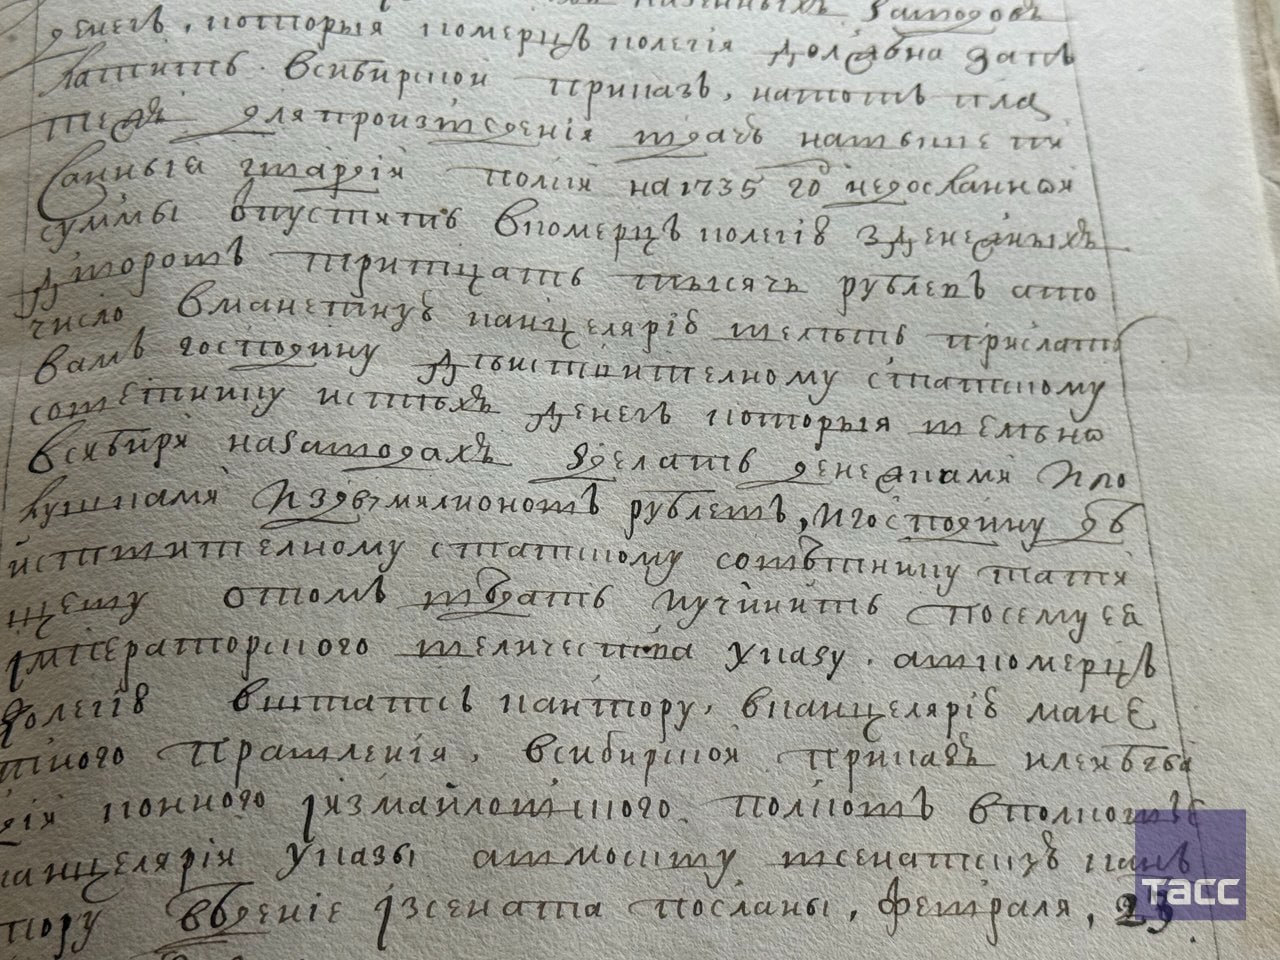 казенныхъ заводовъ
денегъ, которыя комерцъ колегія должна запъ
латить в сибирской приказъ, на тотъ пла
теж для произведенія в дачъ на выше пи
санныя гвардіи полки на 1735 год недосланноя
суммы впустить в комерцъ колегіѣ з денежныхъ
дворовъ тритцать тысячъ рублевъ а то
число в манетную канцелярію велѣть прислать
вамъ господину дѣиствителному статскому
советнику ис тѣхъ денегъ которыя велѣно
в сибиря на заводахъ зделать денешками и по
лушками и з двѣ милионовъ рублевъ, и господину дѣ
йствителному статскому советнику тати
щеву о томъ вѣдать и учинить по сему ея
імператорского величества указу. а в комерцъ
колегію в штатсъ кантору, в канцелярію мане
тного правленія, в сибирской приказъ и лейбгва
дій конного і измайловского полковъ в полковые
канцелярии указы а в москву в сенатскую кан
тору вѣденіе ізсената посланы, февраля, 23.
ТАСС